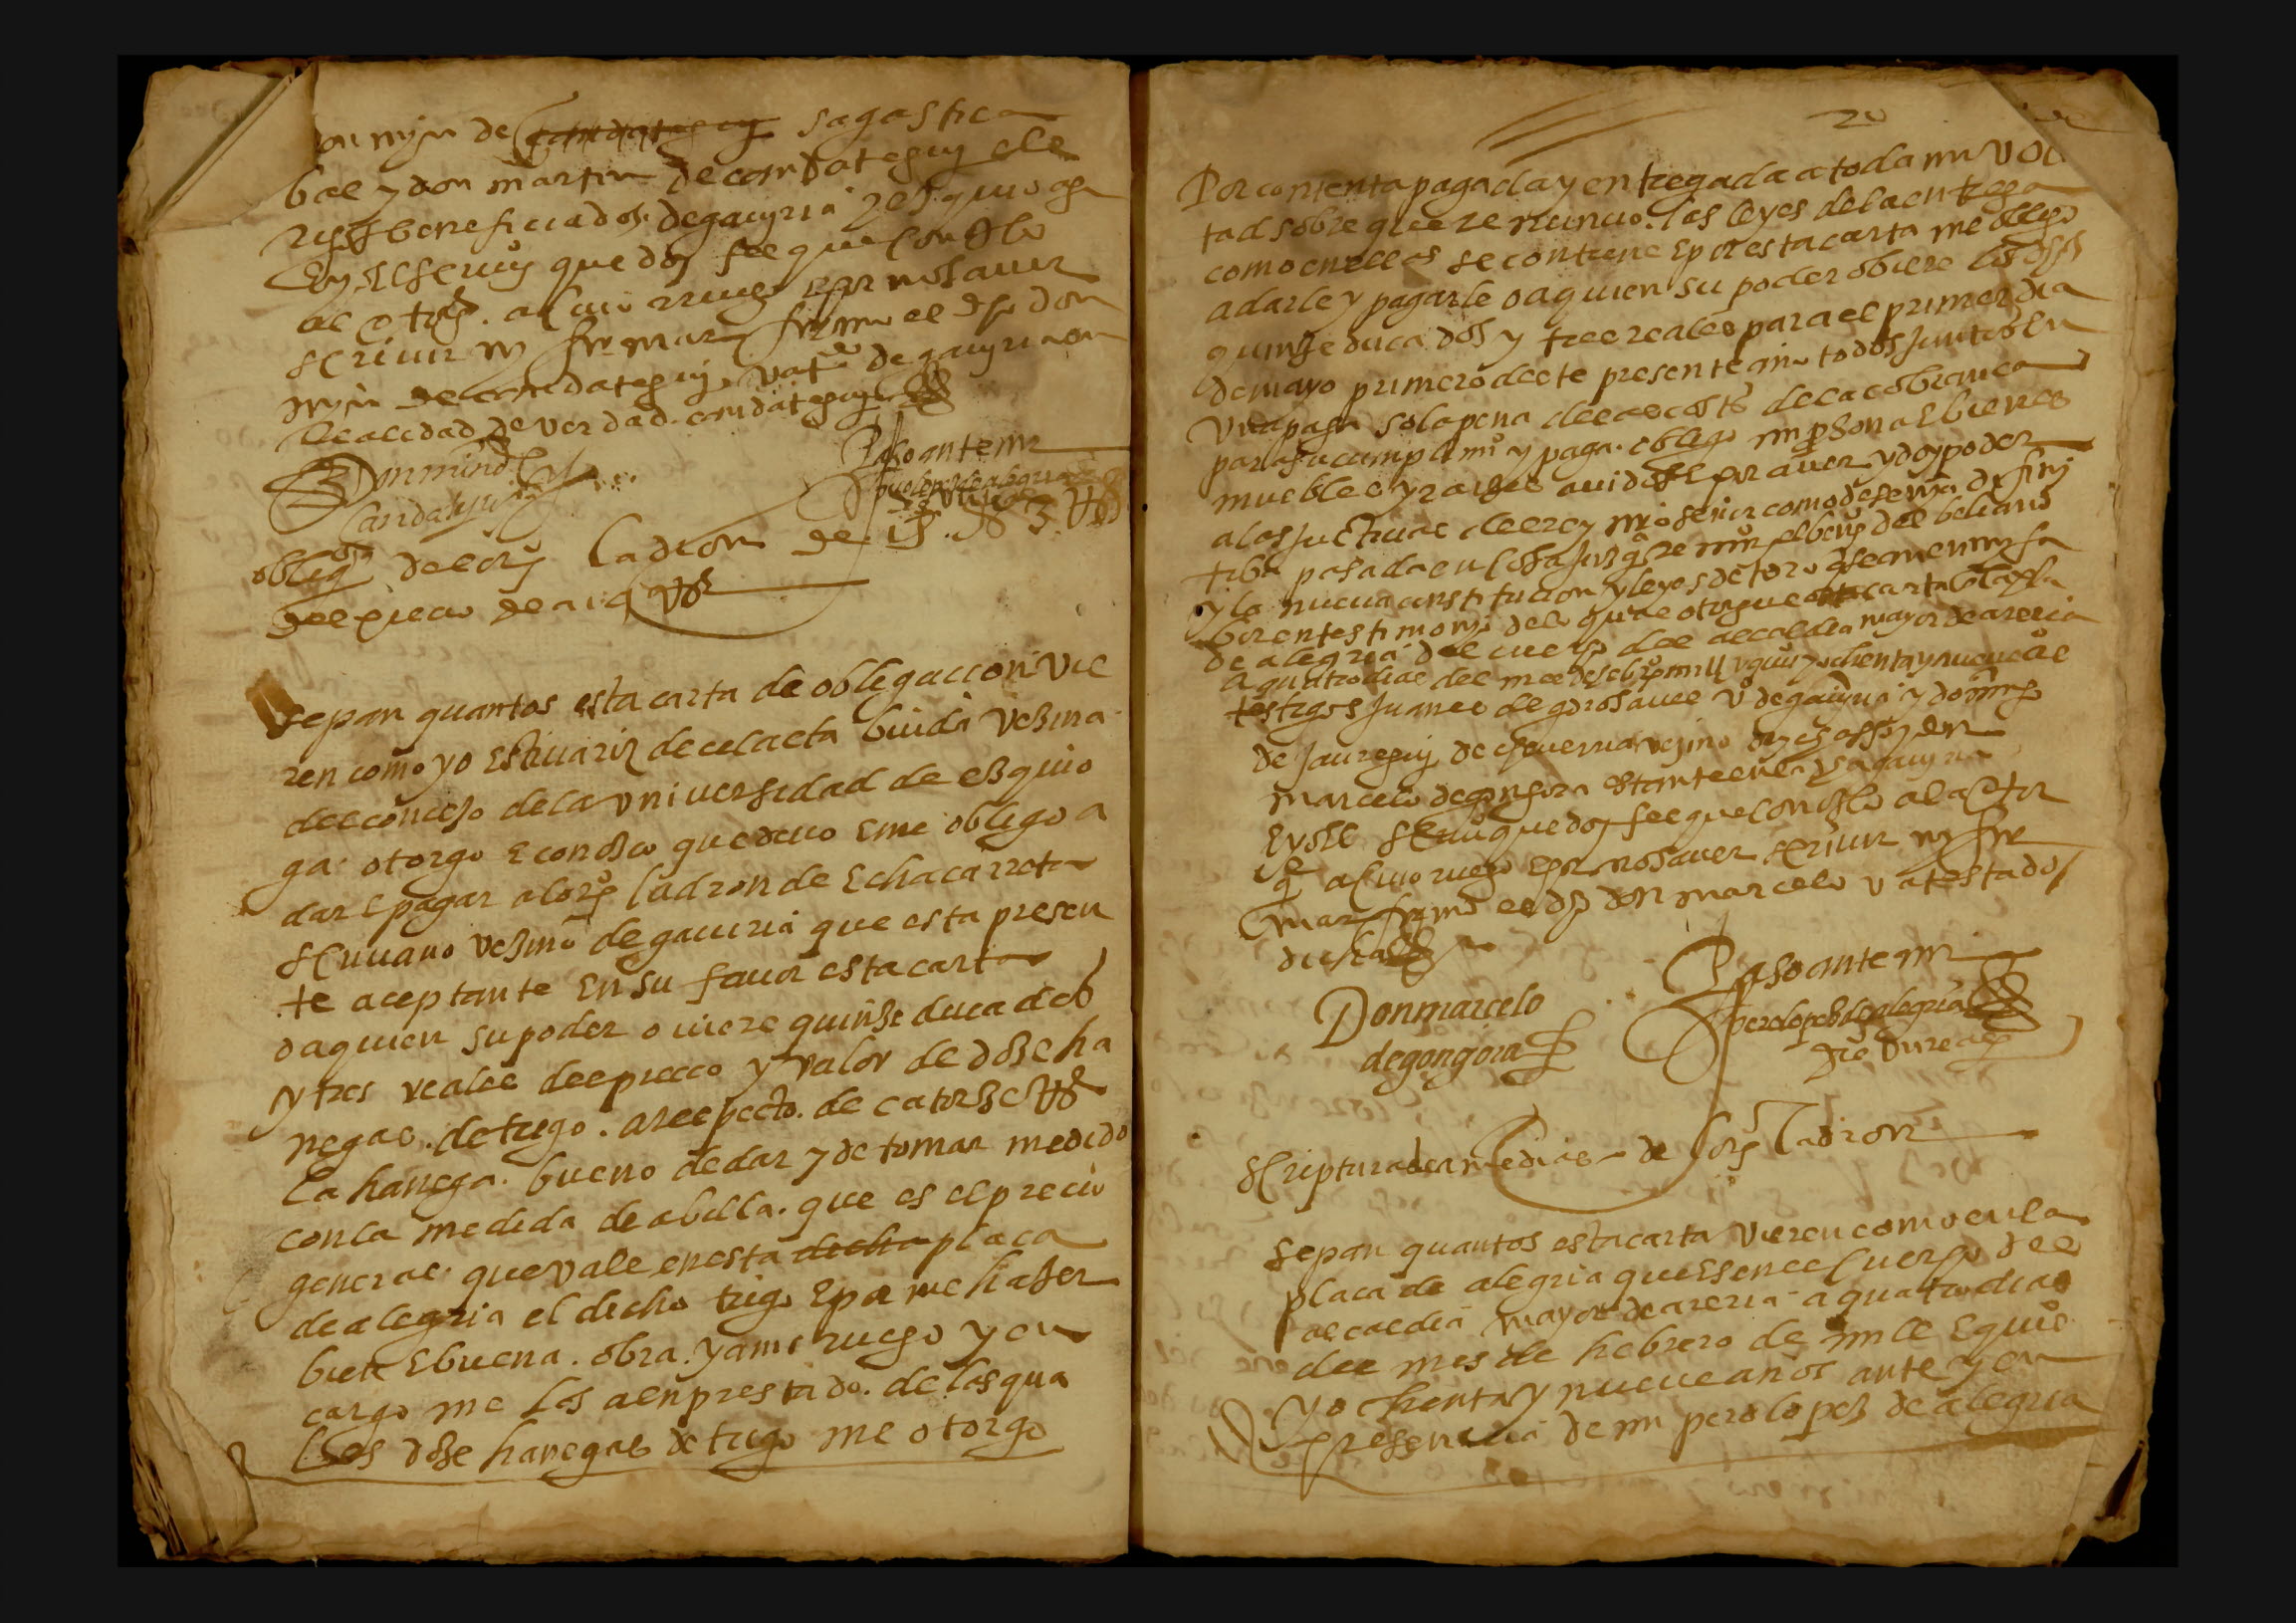 de sagasti
bal y don martin de candategui cle
rigos beneficiados de gauiria y esquioga
E yo el escriuº que doy fee que conosco
al otorgte. a cuio ruego por no sauer
scriuir ny firmar firmo el dho don
min de candategui de gauiria
de verdad. candategui
Paso ante mi
Don min de
Candategui
obligon de lorº ladron de
del precio de trigo
Sepan quantos esta carta de obligaccion vie
ren como yo Estiuariz de celaeta biuda vezina
del concejo de la vniuersidad de ezquio
ga. otorgo E conosco que deuo E me obligo a
dar E pagar a lorº ladron de Echacarreta
scriuano vezino de gauiria que esta presen
te aceptante En su fauor esta carta
o a quien su poder ouiere quinze ducados
y tres reales del precio y valor de doze ha
negas. de trigo. a respecto. de catorze Rs
la hanega. bueno de dar y de tomar medido
con la medida de abilla. que es el precio
general que vale en esta dicha plaça
de alegria el dicho trigo E por me hazer
bien E buena. obra. y a mi ruego y en
cargo me los a enprestado. de los qua
les doze hanegas de trigo me otorgo
20
Por contenta pagada y entregada a toda mi vol
tad sobre que renuncio. las leyes de la entrega
como en ellas se contiene E por esta carta me obligo
a darle y pagarle o a quien su poder obiere los dhos
quinze ducados y tres reales para el primer dia
de mayo primero deste presente año todos juntos En
vna paga so la pena de las costas de la cobrança
para su cumplimiº y paga. obligo mi persona E bienes
muebles y raizes auidos E por auer y doy poder
a las justicias del rey nro señor como de sentençia difini
tiba pasada en cosa juzgª renunº el benefº del beliano
y la nueua constitucion y leyes de toro q̃ son en mi fa
bor en testimonio de lo qual otorgue esta carta en la plaça
de alegria del cuerpo del alcaldia mayor de areria
a quatro dias del mes de hebrº mill y quis y ochenta y nueue as
testigos juanes de gorosauel vº de gauiria y domingo
de jauregui de ezquerra vezino y don
marcelo de gongora estante en gauiria
E yo el scriuº que doy fee que conosco a la otor
gte a cuio ruego E por no sauer scriuir ny fir
mar firmo el dho don marcelo va testado
dicha
Paso ante mi
Don marcelo
de gongora
pero lopez de alegria
Scriptura de a medias de lorº ladron
Sepan quantos esta carta vieren como en la
plaça de alegria que Es en el cuerpo del
alcaldia mayor de areria a quatro dias
del mes de hebrero de mill E quiºs
y ochenta y nueue años ante y en
presencia de mi pero lopez de alegria